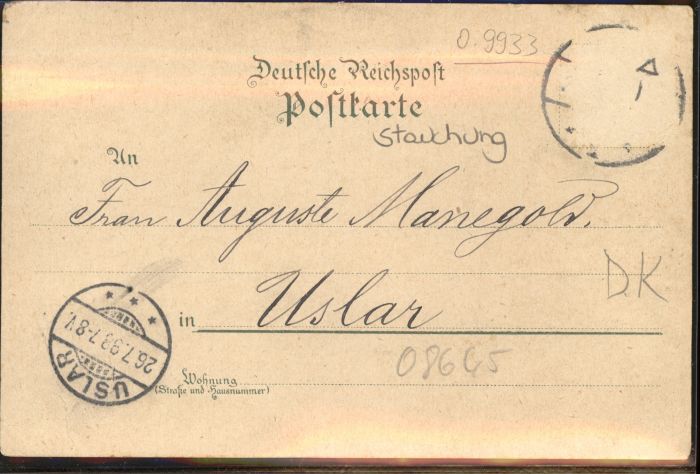 0.9933
Deutsche Reichspost
Postkarte
Stauchung
An
Frau Auguste Manegold.
D.K
in Uslar
08645
Wohnung
(Straße und Hausnummer)
USLAR
26.7.98.7-8V.